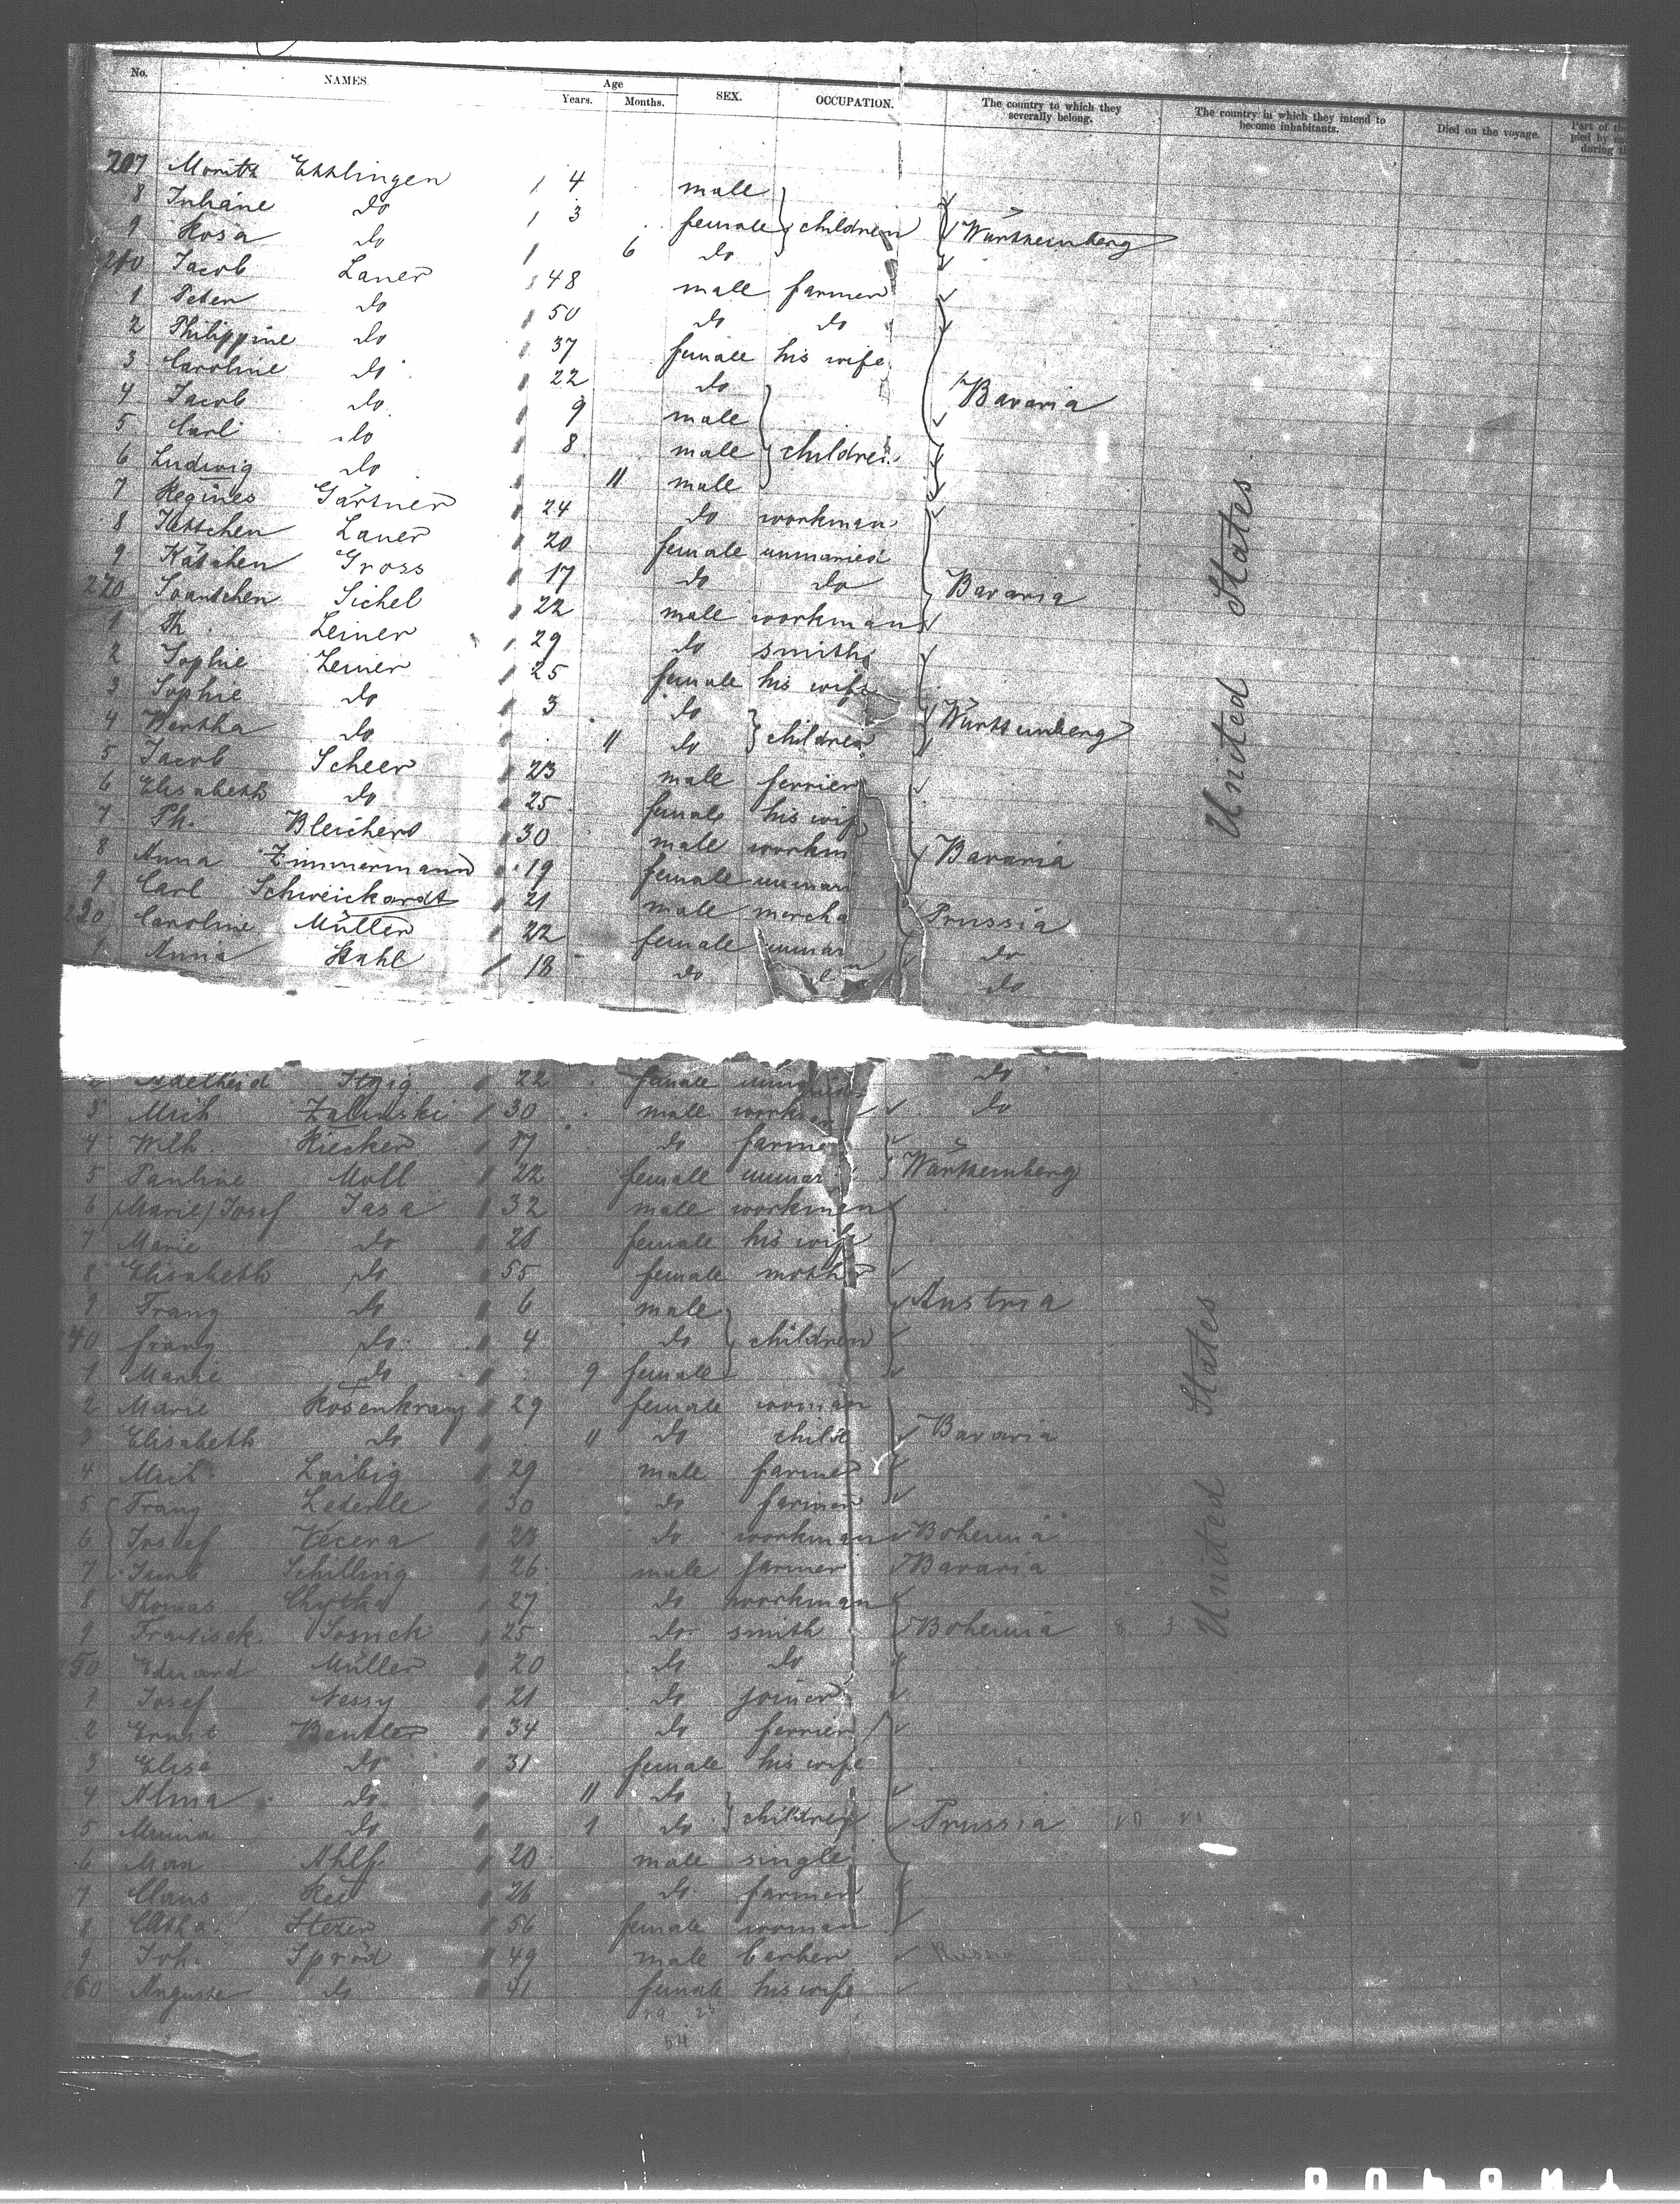 No. NAMES Age Years. Months. SEX. OCCUPATION. The country to which they severally belong. The country in which they intend to become inhabitants. Died on the voyage. Part of the
207 Moritz Esslingen 4 male
8 Juliane do 3 female children Württemberg
9 Rosa do 6 do
210 Jacob Lauer 48 male farmer
1 Peter do 50 do do
2 Philippine do 37 female his wife
3 Caroline do 22 do Bavaria
4 Jacob do 9 male
5 Carl do 8 male children
6 Ludwig do 11 male
7 Regines Gärtner 24 do workman
8 Lauer 20 female unmaried
9 Kätchen Gross 17 do do Bavaria
220 Sichel 22 male workman
1 Th. Leiner 29 do smith
2 Sophie Leiner 25 female his wife
3 Sophie do 3 do Württemberg
4 Bertha do 11 do children
5 Jacob Scheer 23 male ferrier
6 Elisabeth do 25 female his wife
7 Ph. Bleichert 30 male workm Bavaria
8 Anna Zimmermann 19 female unmar
9 Carl Schweickardt 21 male mercha Prussia
230 Caroline Müller 22 female unmar do
1 Anna Stahl 18 do do
United States
2 Adelheid Itzig 22 female unm do
3 Mich Zalinski 30 male workman do
4 Wilh. Riecker 17 do farmer
5 Pauline Moll 22 female unmar Württemberg
6 (Marie) Josef Jasa 32 male workman
7 Marie do 28 female his wife
8 Elisabeth do 55 female mother
9 Franz do 6 male Austria
240 franz do 4 do children
1 Marie do 9 female
2 Marie Rosenkranz 29 female woman
3 Elisabeth do 11 do child Bavaria
4 Mich. Laibig 29 male farmer
5 Franz Lederle 30 do farmer
6 Josef Vecera 23 do workman Bohemia
7 Jacob Schilling 26 male farmer Bavaria
8 Thomas Chytka 27 do workman
9 Frantisek Sosnek 25 do smith Bohemia 8. 3
250 Eduard Müller 20 do do
1 Josef Nessy 21 do joiner
2 Ernst Beutler 34 do ferrier
3 Elise do 31 female his wife
4 Alma do 11 do
5 Minna do 1 do children Prussia
6 Max Ahlf 20 male single
7 Claus Ree 26 do farmer
8 Catha. 56 female woman
9 Joh. Spröd 49 male barber Russia
260 Auguste do 41 female his wife
29 25
54
United States